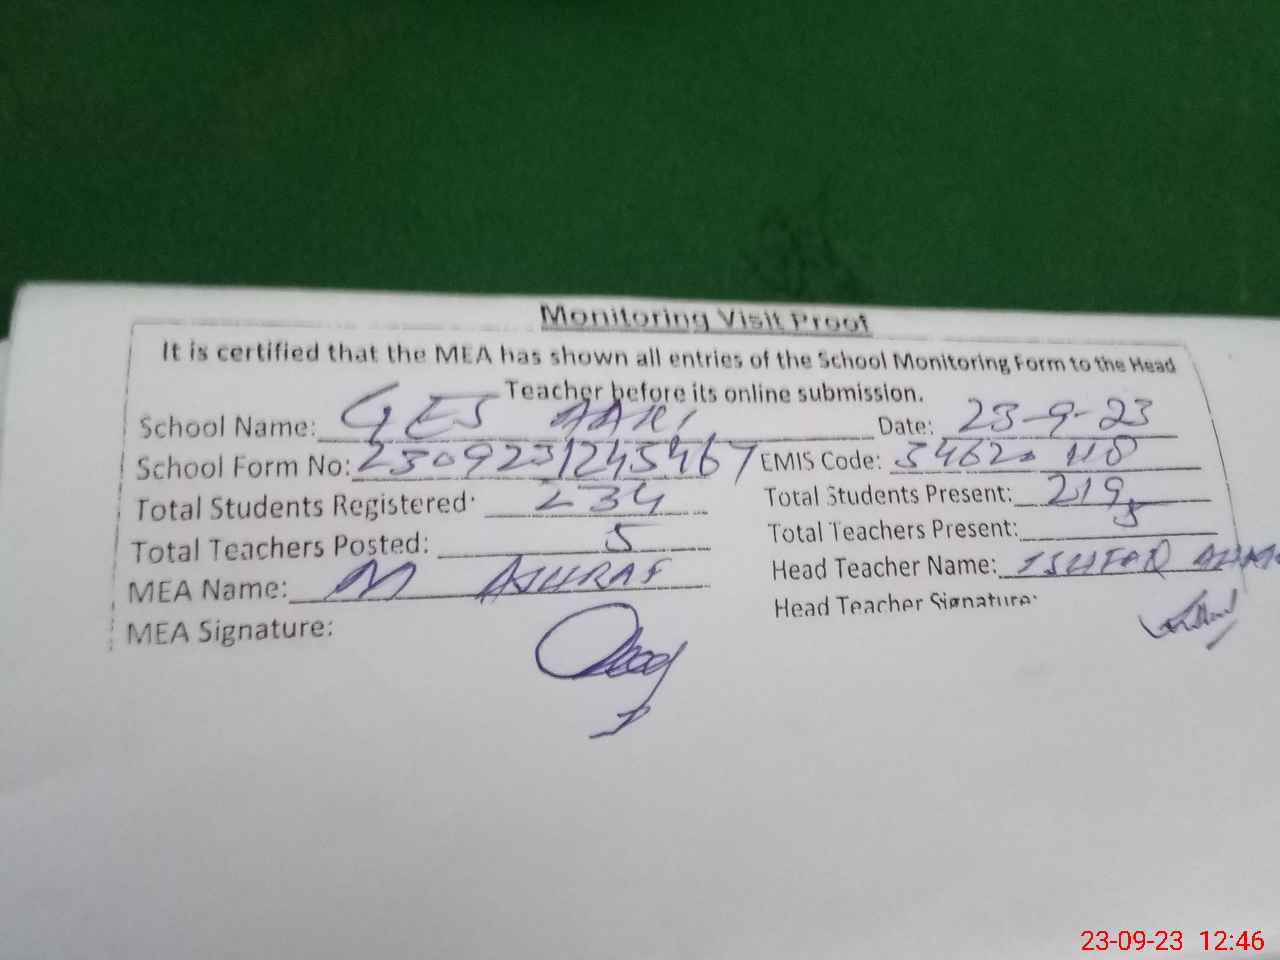 Monitoring Visit Proof
It is certified that the MEA has shown all entries of the School Monitoring Form to the Head
Teacher before its online submission.
School Name: GES Date: 23-9-23
School Form No: 230923124546 7 EMIS Code: 34620 110
Total Students Registered: 234 Total Students Present: 219
Total Teachers Posted: 5 Total Teachers Present: 5
MEA Name: M ASHRAF Head Teacher Name: ISHFAQ
MEA Signature: Head Teacher Signature:
23-09-23 12:46